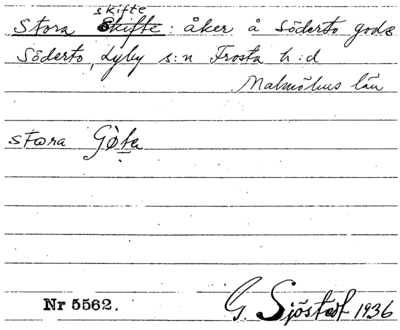 skifte
Stora Skifte: åker å Söderto gods
Söderto, Lyby s:n Frosta h:d
Malmöhus län
stora Göta
Nr 5562.
G. Sjöstedt 1936